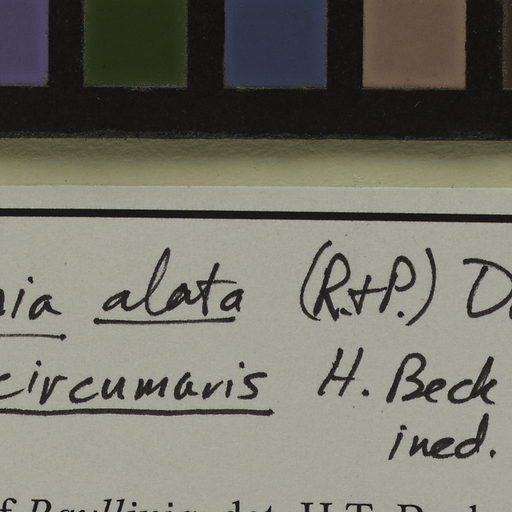 nia alata (R.+P.) D
circumaris H. Beck
ined.
f Paullinia det. H.T. Beck